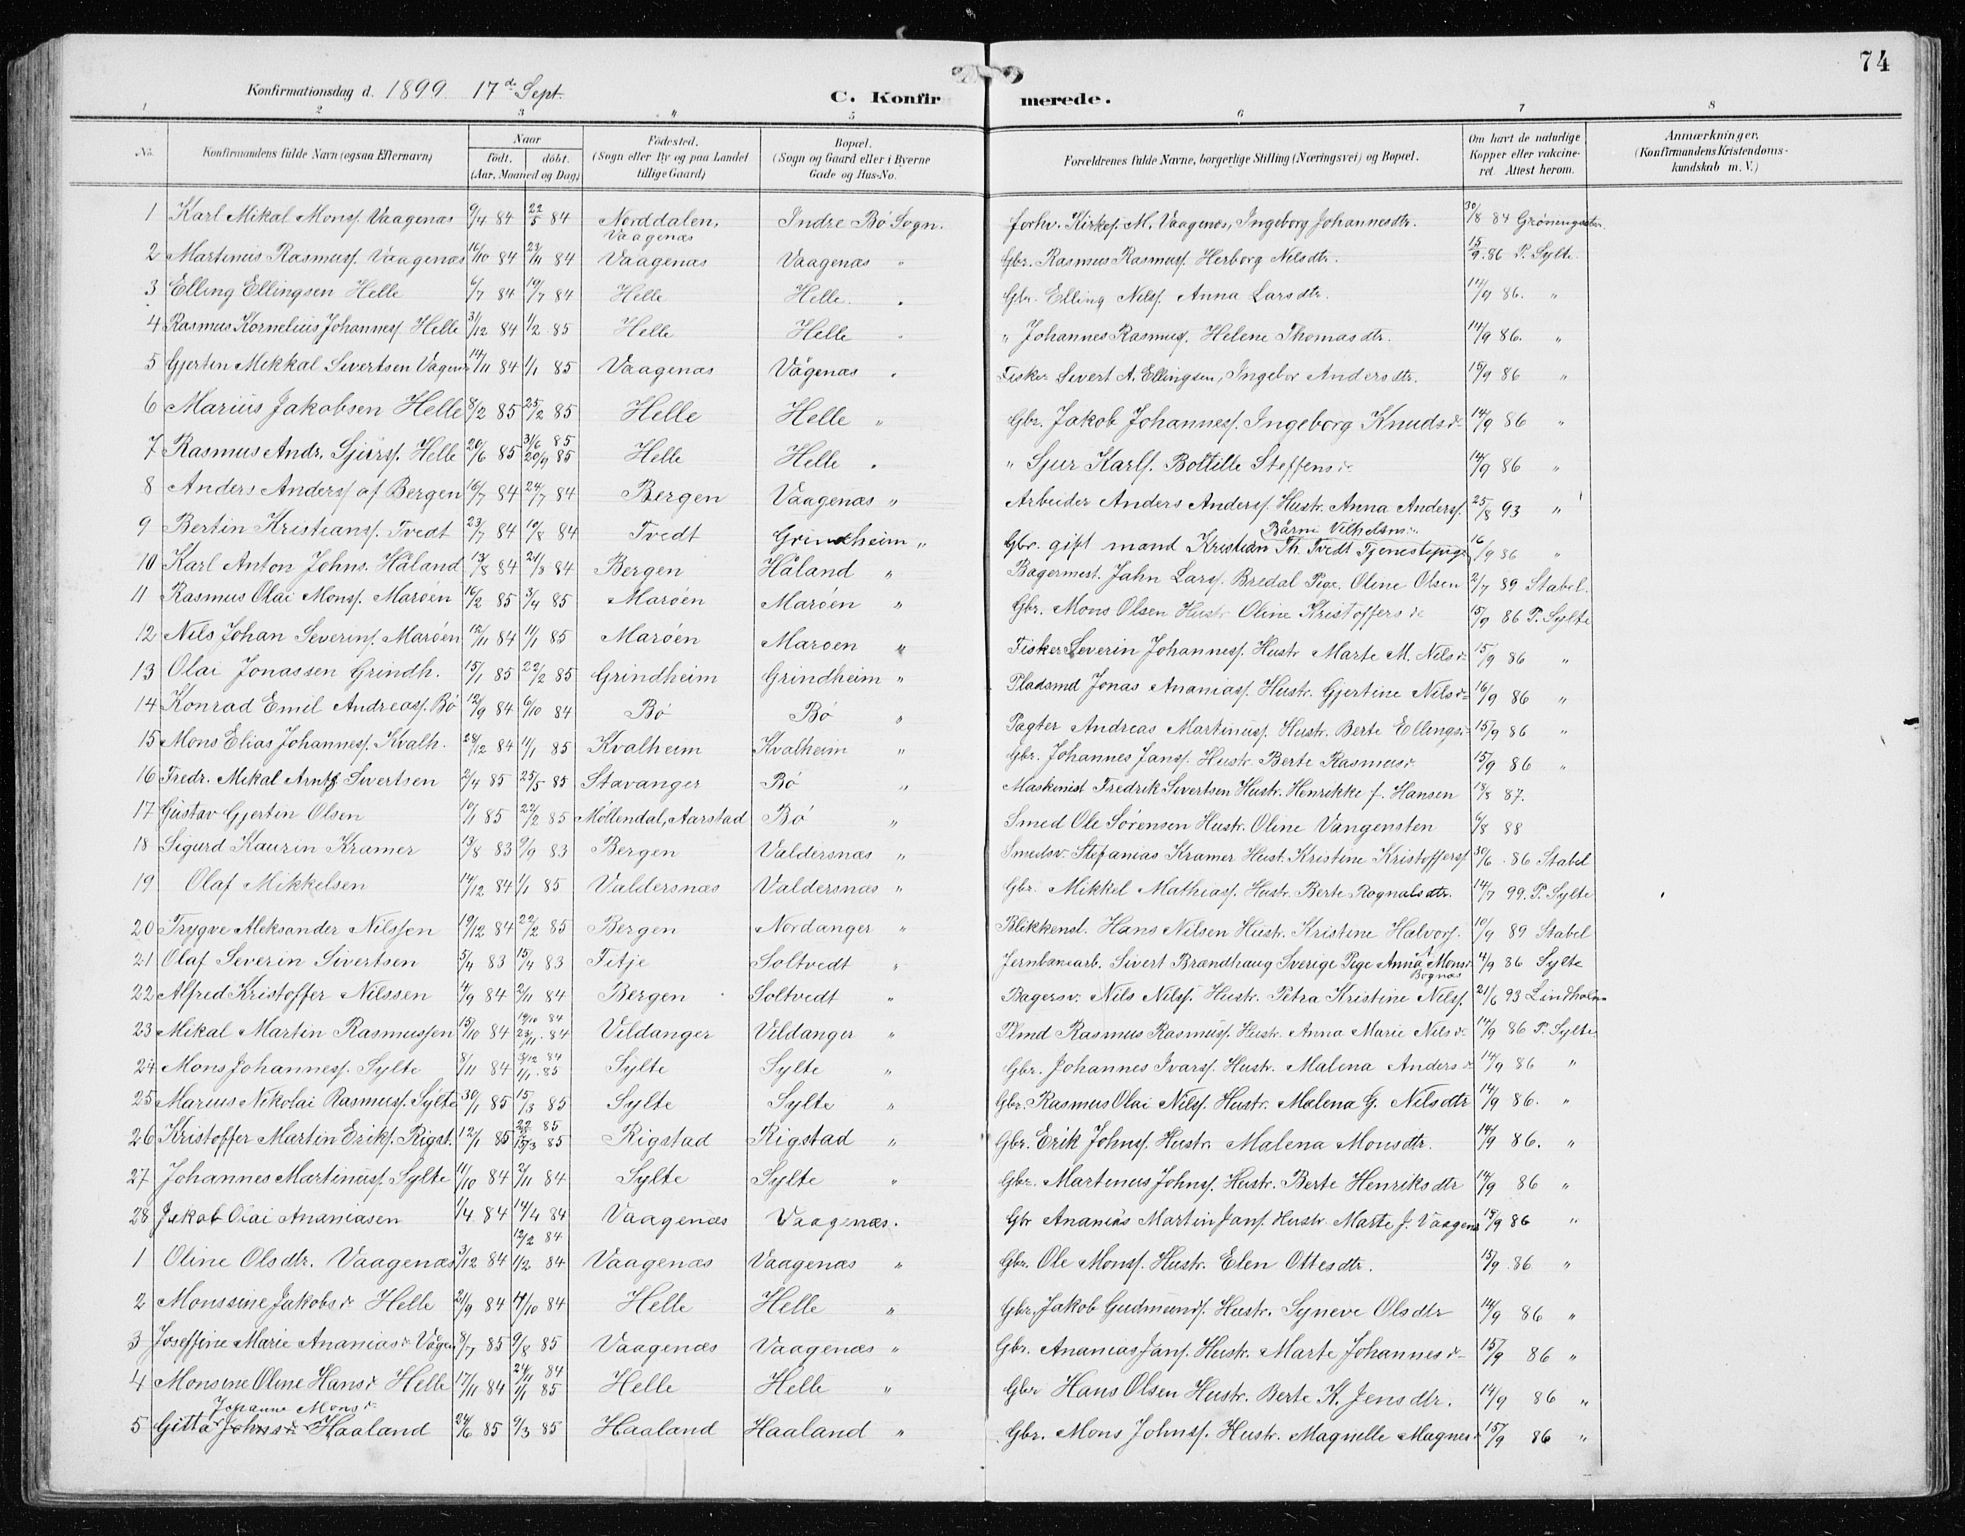 74
Konfirmationsdag d. 1899 17de Sept.
C. Konfirmerede.
1 2 3 4 5 6 7 8
No. Konfirmandens fulde Navn (ogsaa Efternavn) Naar født. døbt. (Aar, Maaned og Dag) Fødested. (Sogn eller By og paa Landet tillige Gaard) Bopæl. (Sogn og Gaard eller i Byerne Gade og Hus-No. Forældrenes fulde Navne, borgerlige Stilling (Næringsvei) og Bopæl. Om havt de naturlige Kopper eller vakcineret. Attest herom. Anmærkninger. (Konfirmandens Kristendomskundskab m. V.)
1 Karl Mikal Monss. Vaagenæs 9/4 84 22/5 84 Norddalen, Vaagenæs Indre Bø Sogn. forhv. Kirkes. M. Vaagenæs, Ingeborg Johannesdtr. 30/8 84
2 Martinus Rasmuss. Vaagenæs 16/10 84 23/11 84 Vaagenæs Vaagenæs " Gbr. Rasmus Rasmuss. Herborg Nilsdtr. 15/9 86 P. Sylte
3 Elling Ellingsen Helle 6/7 84 19/7 84 Helle Helle " Gbr. Elling Nilss. Anna Larsdtr. 14/9 86. "
4 Rasmus Kornelius Johanness. Helle 31/12 84 1/2 85 Helle Helle " " Johannes Rasmuss. Helene Thomasdtr. 14/9 86. "
5 Gjertin Mekkal Sivertsen Vagenæs 14/11 84 1/1 85 Vaagenæs Vågenæs " Fisker Sivert A. Ellingsen, Ingebor Andersdtr. 15/9 86 "
6 Marius Jakobsen Helle 8/2 85 25/2 85 Helle Helle " Gbr. Jakob Johanness. Ingeborg Knudsdr 14/9 86 "
7 Rasmus Andr. Sjurss. Helle 20/6 85 3/6 85 20/9 85 Helle Helle " " Sjur Karls. Botille Steffensdr 14/9 86 "
8 Anders Anderss af Bergen 16/7 84 24/7 84 Bergen Vaagenæs " Arbeider Anders Anderss. Hustr. Anna Anderss. 25/8 93 "
9 Bertin Kristianss. Tvedt 23/7 84 19/8 84 Tvedt Grindheim " Gbr. gift mand Kristian Th. Tvedt Tjenestepige Bårni Vilhelmsdr 16/9 86 "
10 Karl Anton Johns. Håland 13/8 84 24/8 84 Bergen Håland " Bagermest. Jahn Larss. Bredal Pige. Oline Olsen 2/7 89 Stabel.
11 Rasmus Olai Monss. Marøen 16/2 85 3/4 85 Marøen Marøen " Gbr. Mons Olsen Hustr. Oline Kristoffersdr 15/9 86 P. Sylte
12 Nils Johan Severins. Marøen 12/11 84 11/1 85 Marøen Marøen " Fisker Severin Johanness. Hustr Marte M. Nilsdr 15/9 86 "
13 Olai Jonassen Grindh. 15/1 85 22/2 85 Grindheim Grindheim " Pladsmd Jonas Ananiass. Hustr. Gjertine Nilsdr 16/9 86 "
14 Konrad Emil Andreass. Bø 12/9 84 6/10 84 Bø Bø " Pagter Andreas Martinuss. Hustr. Berte Ellingsdr 15/9 86 "
15 Mons Elias Johanness. Kvalh. 28/12 84 11/1 85 Kvalheim Kvalheim " Gbr. Johannes Janss. Hustr. Berte Rasmusdr 15/9 86 "
16 Fredr. Mikal Arntz Sivertsen 2/4 85 25/5 85 Stavanger Bø " Maskinist Fredrik Sivertsen Hustr. Henrikke f. Hansen 18/8 87.
17 Gustav Gjertin Olsen 10/1 85 22/2 85 Møllendal, Aarstad Bø " Smed Ole Sørensen Hustr. Oline Vangensten 6/8 88
18 Sigurd Kaurin Kramer 13/8 83 9/9 83 Bergen Valdersnæs " Smedsv. Stefanias Kramer Hust. Kristine Kristofferss. 30/6 86 Stabel
19 Olaf Mikkelsen 14/12 84 1/1 85 Valdersnæs Valdersnæs " Gbr. Mikkel Mathiass. Hustr. Berte Rognalsdtr. 14/7 99. P. Sylte
20 Trygve Aleksander Nilssen 19/12 84 22/2 85 Bergen Nordanger " Blikkensl. Hans Nilsen Hustr. Kristine Halvors. 10/9 89 Stabel
21 Olaf Severin Sivertsen 5/4 83 15/4 83 Titje Soltvedt " Jernbanearb. Sivert Brandhaug Sverige Pige Anna A Monsdr Bognæs 4/9 86 Sylte
22 Alfred Kristoffer Nilssen 4/9 84 2/11 84 Bergen Soltvedt " Bagersv. Nils Nilss. Hustr. Petra Kristine Nilss. 21/6 93 Lindholm
23 Mikal Martin Rasmussen 15/10 84 19/10 84 23/11 84 Vildanger Vildanger " Plmd Rasmus Rasmuss. Hustr. Anna Marie Nilsdr 14/9 86 P. Sylte
24 Mons Johanness. Sylte 8/11 84 3/12 84 1/1 85 Sylte Sylte " Gbr. Johannes Ivarss. Hustr. Malena Andersdr 14/9 86 "
25 Marius Nikolai Rasmuss. Sylte 30/1 85 15/3 85 Sylte Sylte " Gbr. Rasmus Olai Nilss. Hustr. Malena G. Nilsdtr 14/9 86. "
26 Kristoffer Martin Eriks. Rigst. 12/1 85 22/2 85 15/3 85 Rigstad Rigstad " Gbr. Erik Johnss. Hustr. Malena Monsdtr. 14/9 86. "
27 Johannes Martinuss. Sylte 11/10 84 2/11 84 Sylte Sylte " Gbr. Martinus Johnss. Hustr. Berte Henriksdtr 14/9 86 "
28 Jakob Olai Ananiasen 1/4 84 14/4 84 Vaagenæs Vaagenæs. Gbr Ananias Martin Jans. Hustr. Marte J. Vaagenæs 15/9 86 "
1 Oline Olsdtr. Vaagenæs 3/12 84 12/2 84 1/2 84 Vaagenæs Vaagenæs " Gbr. Ole Monss. Hustr. Elen Ottesdtr. 15/9 86 "
2 Monssine Jakobsdr Helle 21/9 84 19/10 84 Helle Helle " Gbr. Jakob Gudmunds. Hustr. Syneve Olsdtr 14/9 86 "
3 Joseffine Marie Ananiasdr Vågen 8/7 85 9/8 85 Vaagenæs Vaagenæs " Gbr. Ananias Jans. Hustr. Marte Johannesdr 15/9 86 "
4 Monsine Oline Hansdr Helle 17/11 84 24/11 84 1/1 85 Helle Helle " Gbr Hans Olsen Hustr. Berte K. Jensdtr. 14/9 86 "
5 Gitta Johanne Monsdr Johnsdr Haaland 24/6 85 9/3 85 Haaland Haaland " Gbr. Mons Johnss. Hustr. Magnelle Magnesdr 15/9 86 "